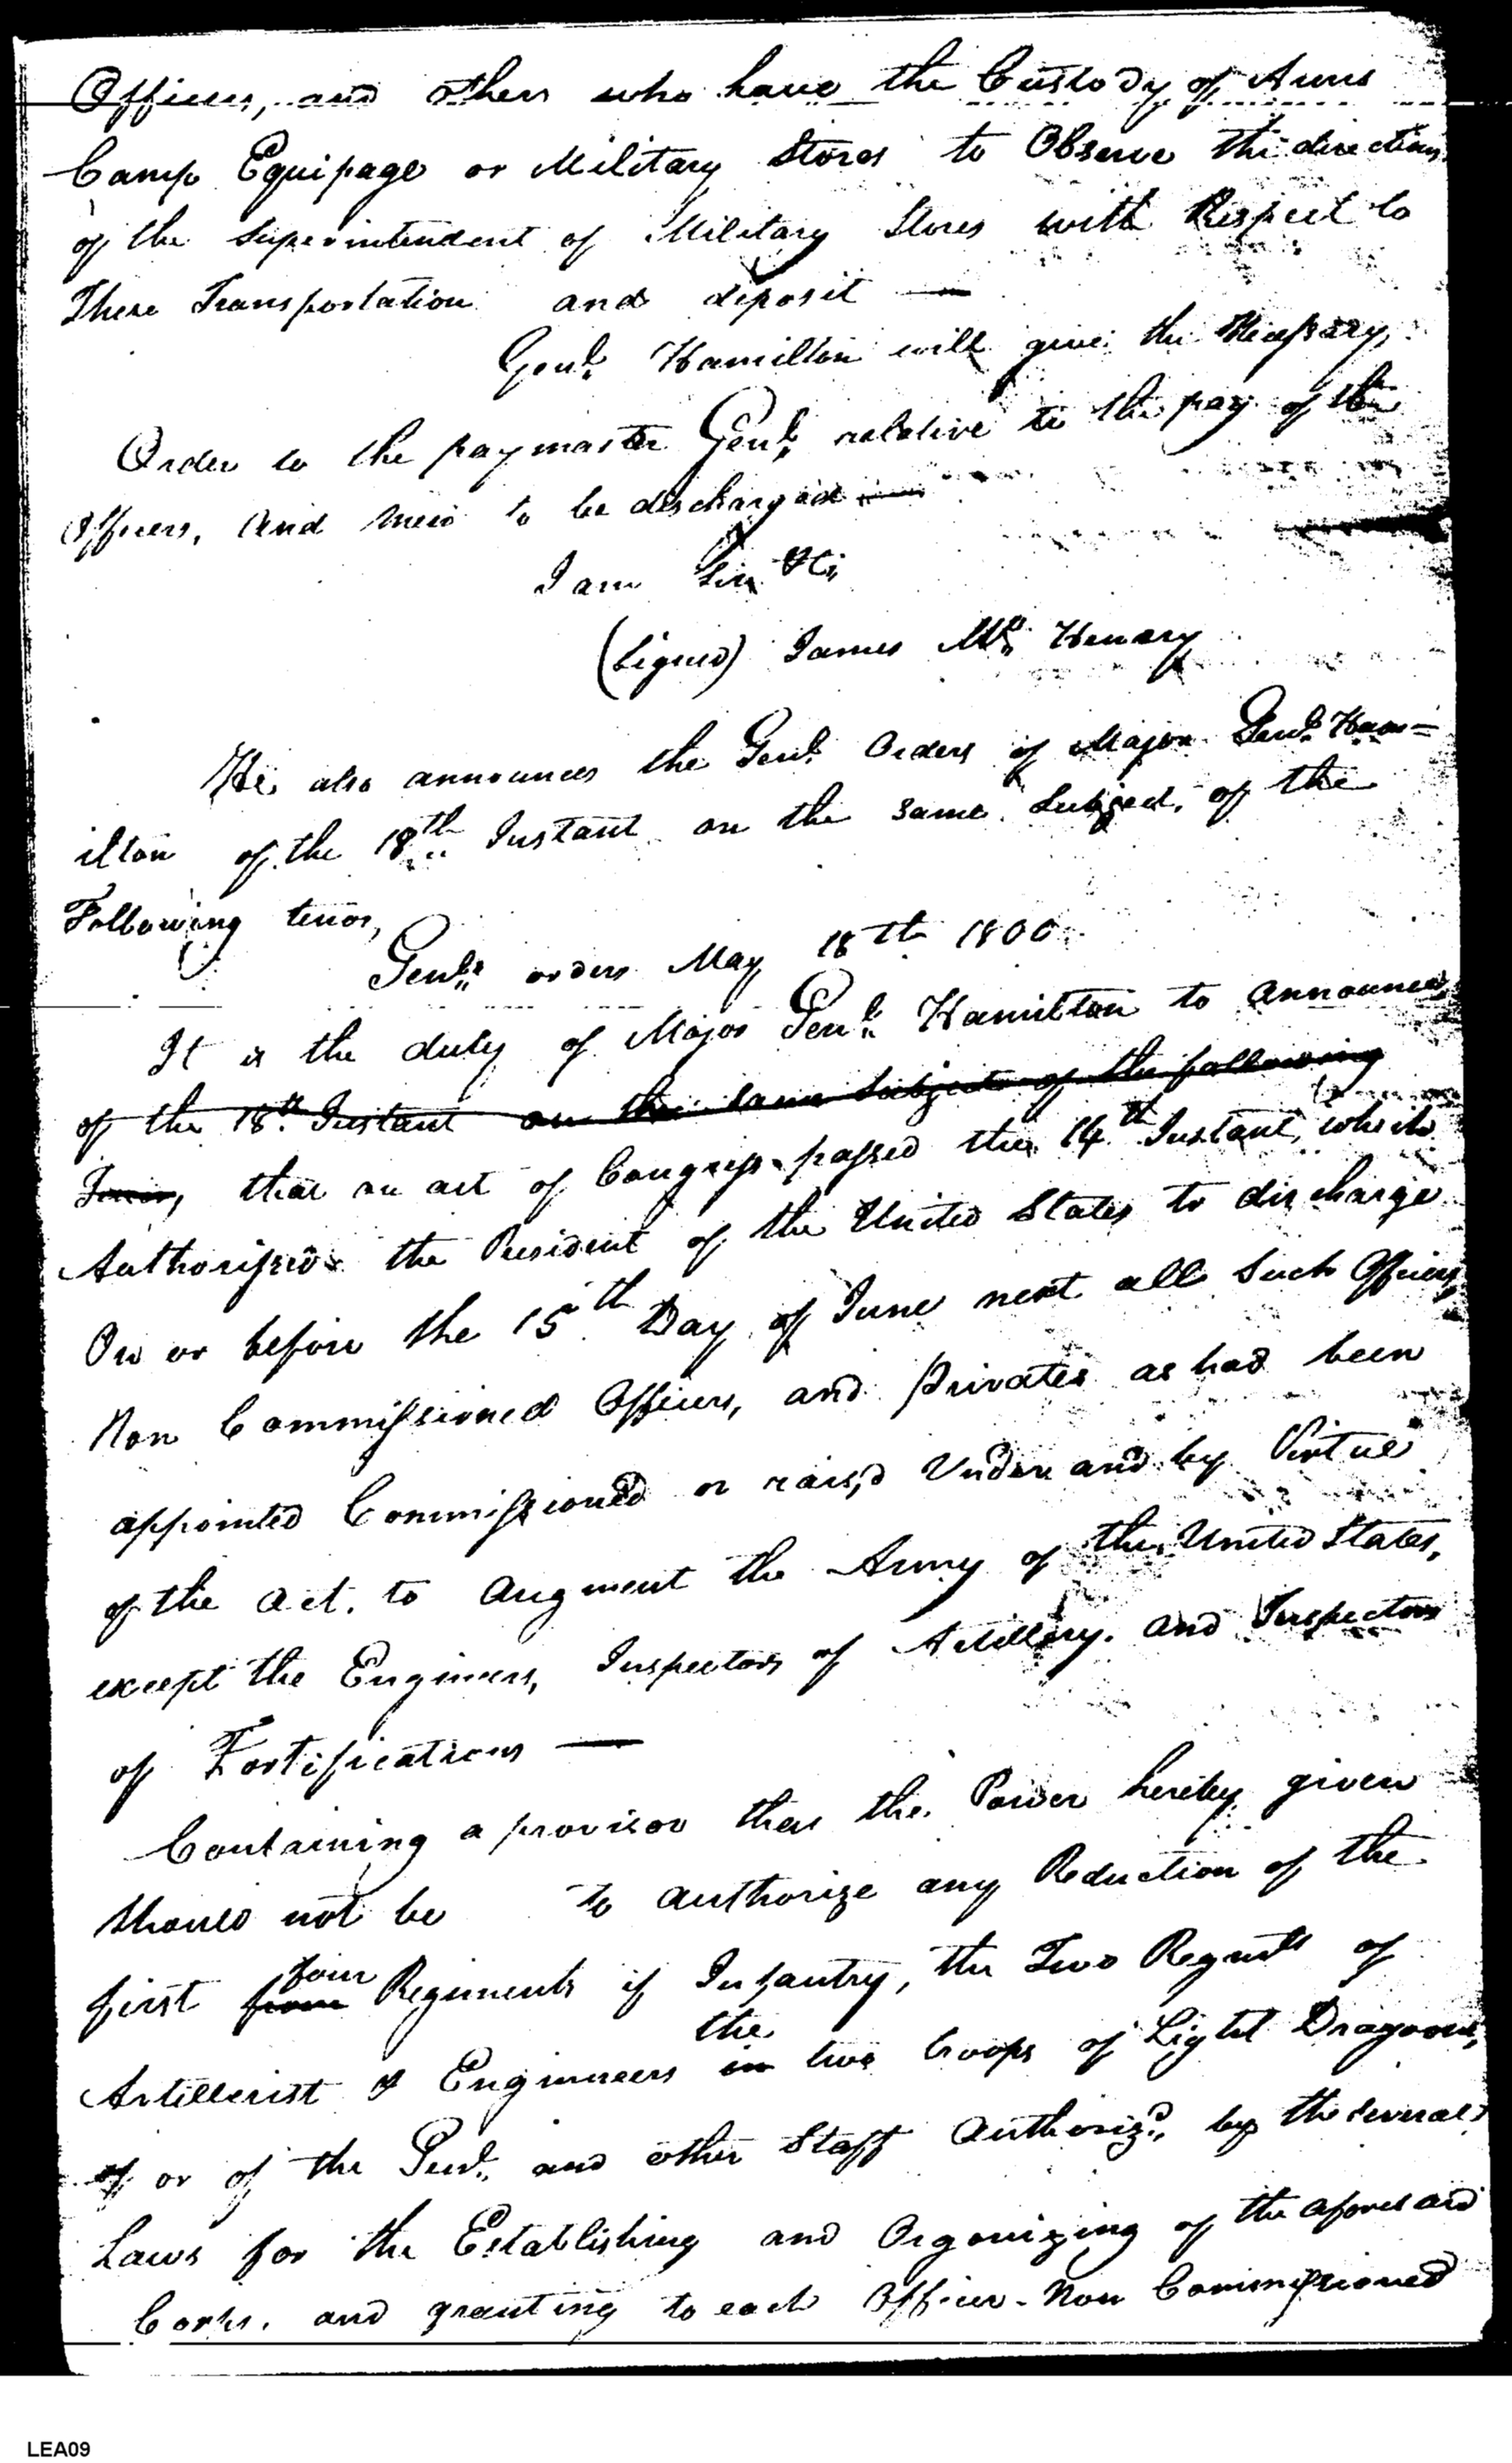 Officers, and others who have the Custody of Arms
Camp Equipage or Military Stores to Observe the directions
of the Superintendent of Military Stores with Respect to
There Transportation and deposit —
Genl. Hamilton will give the Necessary
Order to the paymaster Genl. relative to the pay of the
Officers, And men to be discharged —
I am Sir &c
(Signed) James Mc. Henery
He also announces the Genl. Orders of Major Genl. Ham=
ilton of the 18th Instant on the same Subject, of the
Following tenor,
Genl. orders May 18th 1800
It is the duty of Major Genl. Hamilton to announce
of the 18th. Instant on the same Subject of the following
Tenor, that an act of Congress passed the 14th Instant, which
Authorissed the President of the United States to discharge
On or before the 15th Day of June next all Such Officers
Non Commissioned Officers, and Privates as had been
appointed Commissioned or rais,d Under and by Virtue
of the act, to augment the Army of the United States,
except the Engineers, Inspectors of Artillery. and Inspectors
of Fortifications —
Containing a provisor that the Power hereby given
should not be to authorize any Reduction of the
first from four Regiments of Infantry, the Two Regmts of
Artillerist & Engineers in the two troops of Light Dragoons,
of or of the Genl. and other Staff Authoriz'd, by the several
Laws for the Establishing and Organizing of the aforesaid
Corps. and granting to each Officer - Non Commissioned
LEA09